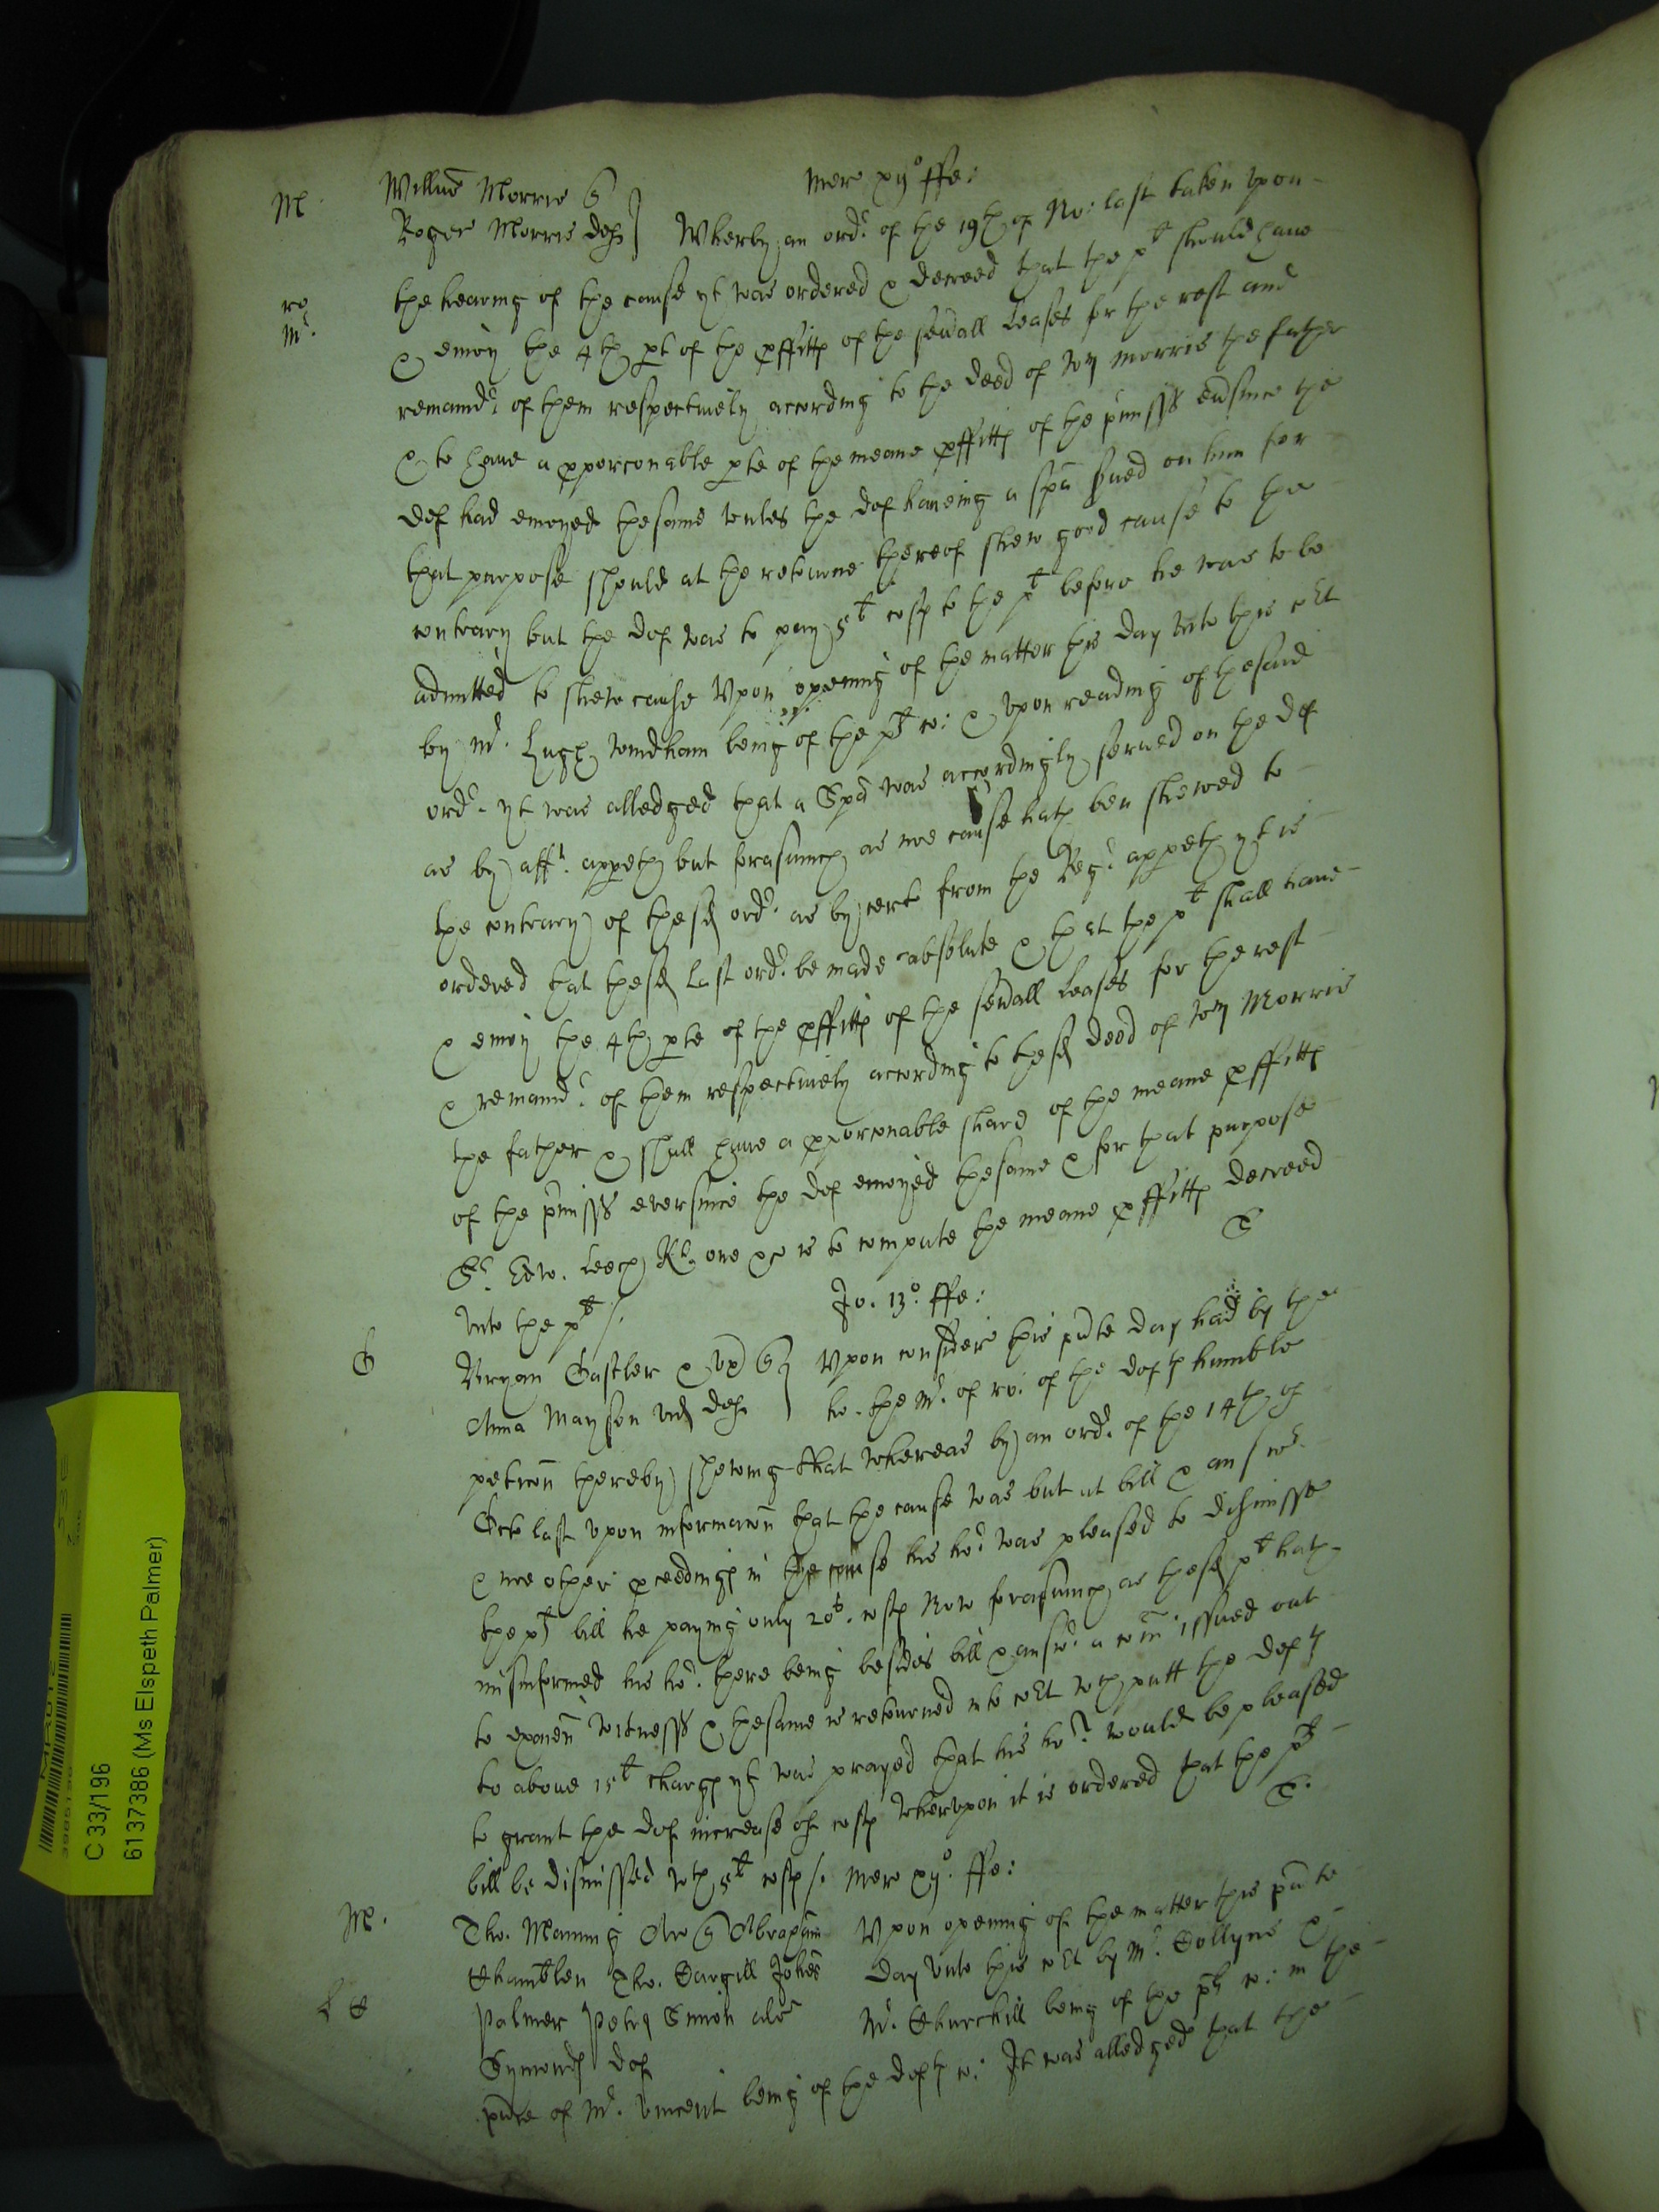 Mer xijo ffe:
M Willus Morris q
Roger Morris def Wherby an ordr. of the 19th of No: last taken upon
the hearing of the cause yt was ordered & decreed that the plt should have
ro Mr. & enioy the 4th pt of the pffitts of the seuall Leases for the rest and
remaindr. of them respectiuely according to the deed of Wm Morris the father
& to haue a pporconable pte of the meane pffitts of the pmisses euer since the
def had enioyed the same vnles the def haueing a spa serued on him for
that purpose should at the retourne thereof shew good cause to the
contrary but the def was to pay 5l costs to the plt before he was to be
admitted to shew cause Vpon opening of the matter this day vnto this cort
by Mr. Hugh Windham being of the plts co: & vpon reading of the said
ordr. yt was alledged that a Spa was accordingly serued on the def
as by afft. appeth but forasmuch as noe cause hath ben shewed to
the contrary of the sd ordr. as by cert from the Regr. appeth yt is
ordered that the sd last ordr. be made absolute & that the plt shall haue
& enioy the 4th pte of the pffitts of the seuall Leases for the rest
& remaindr. of them respectiuely according to the sd deed of Wm Morris
the father & shall haue a pporconable share of the meane pffitts
of the pmisses euersince the def enioyed the same & for that purpose
Sr. Edw. Leech Kt. one &c is to compute the meane pffitts decreed
vnto the plt /.
Jo. 13o. ffe:
Bryan Castler & vx q Vpon consider this pnte day had by the
Anna Mayson vid def ho. the Mr. of ro: of the defts humble
peticon thereby shewing that whereas by an ordr. of the 14th of
Octo last vpon informacon that the cause was but at bill & answr.
& noe other pceedings in the cause his hor. was pleased to dismisse
the plts bill he paying only 20s. costs Now forasmuch as the sd plt hath
misinformed his hor. there being besides bill & answr. a com issued out
to examen witnesses & the same is retourned into cort wch putt the defts
to aboue 15l charges yt was prayed that his hor. would be pleased
to grant the def increase of costs Whervpon it is ordered that the plts
bill be dismissed wth 5l costs /. Mer xijo. ffe:
M. Tho. Manning Ar q Abraham Vpon opening of the matter this pnte
Chamblen Tho. Cargill Johes day vnto this cort by Mr. Collyns &
Palmer Petrus Simon als Mr. Churchill being of the plts co: in the
Symonds def
pnce of Mr. Vincent being of the defts co: It was alledged that the
C 33/196
6137386 (Ms Elspeth Palmer)